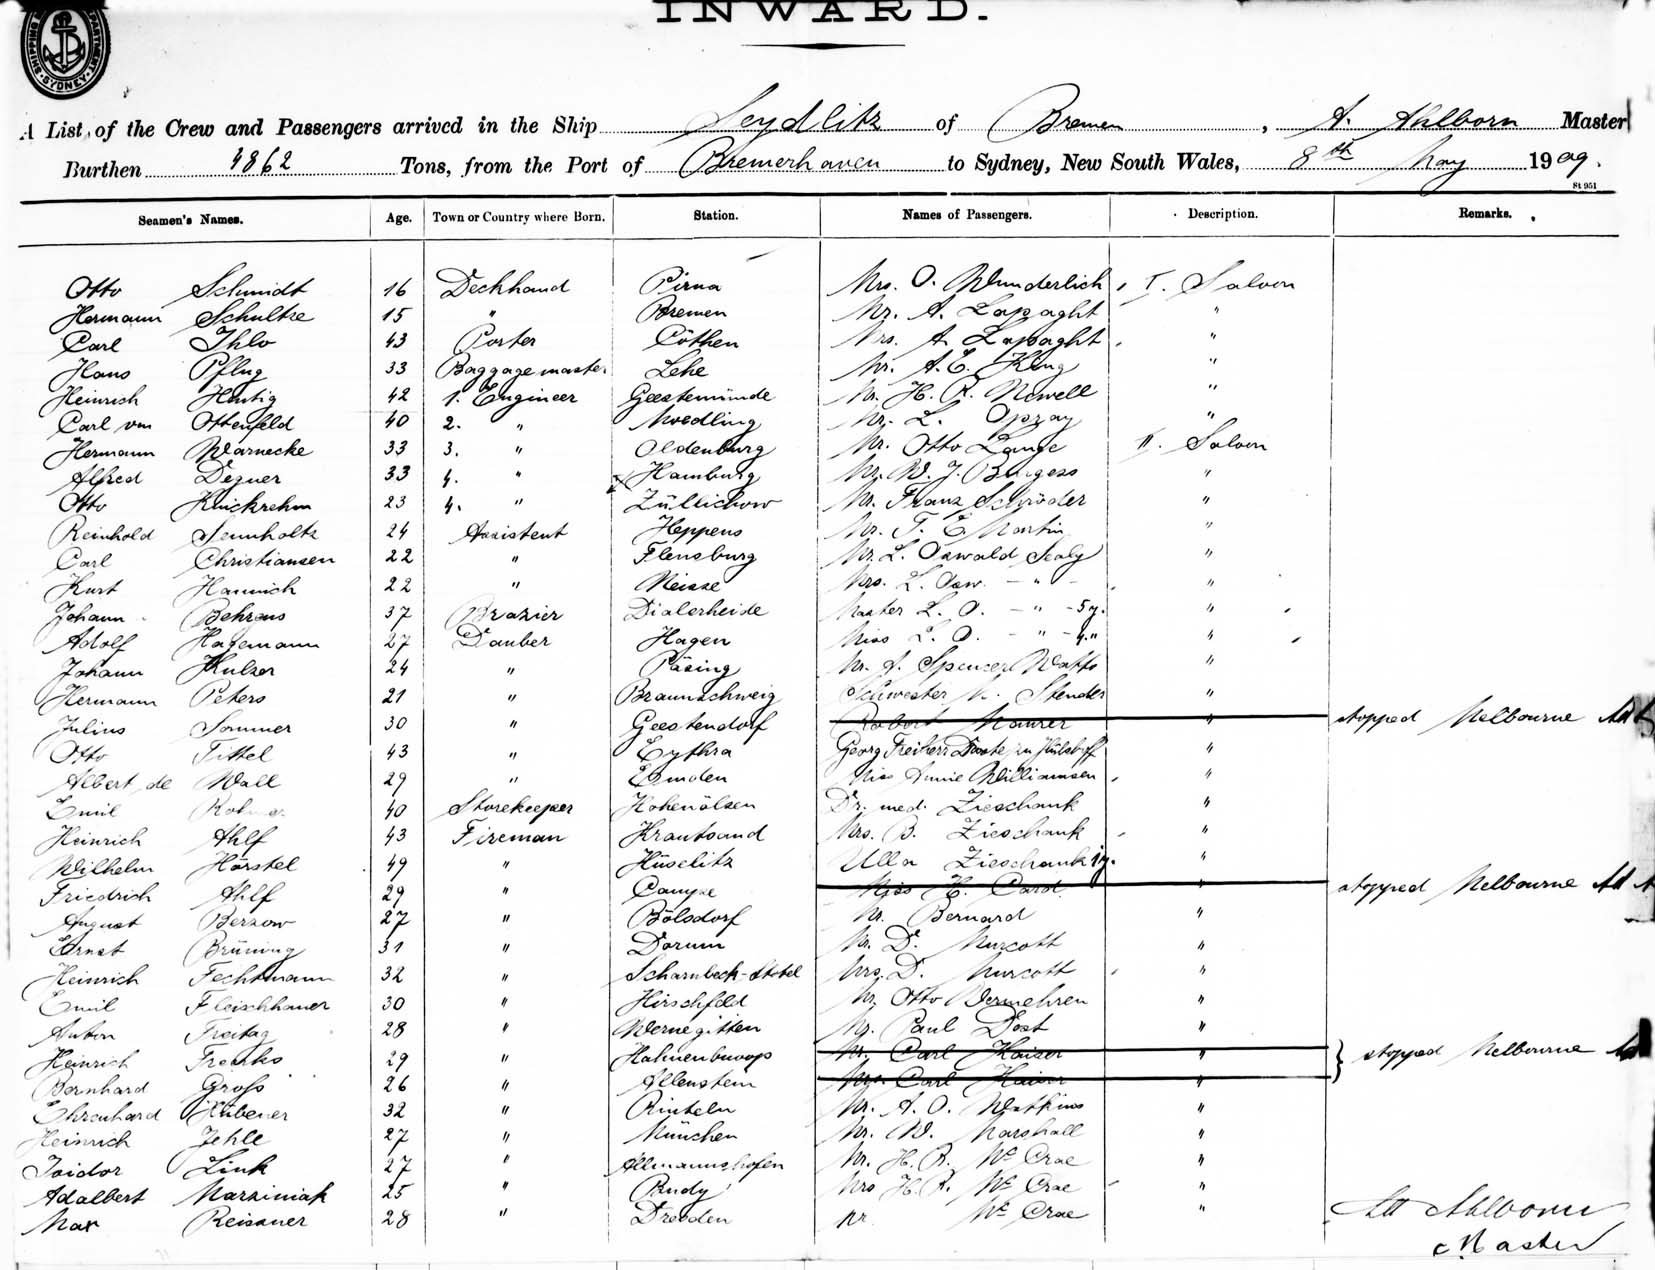 INWARD.
SHIPPING DEPARTMENT SYDNEY
A List of the Crew and Passengers arrived in the Ship Seydlitz of Bremen, A. Ahlborn Master
Burthen 4862 Tons, from the Port of Bremerhaven to Sydney, New South Wales, 8th May 1909.
St 951
Seamen's Names. Age. Town or Country where Born. Station. Names of Passengers. Description. Remarks.
Otto Schmidt 16 Deckhand Pirna Mrs. O. Wunderlich I. Saloon
Hermann Schultze 15 " Bremen Mr. A. Lapaght "
Carl Ihlo 43 Porter Cöthen Mrs. A. Lapaght "
Hans Pflug 33 Baggagemaster Lehe Mr. A. E. King "
Heinrich Hentig 42 1. Engineer Geestemünde Mr. H. R. Newell "
Carl von Ottenfeld 40 2. " Moedling Mr. L. Opzay "
Hermann Warnecke 33 3. " Oldenburg Mr. Otto Lange II. Saloon
Alfred Degner 33 4. " Hamburg Mr. W. J. Burgess "
Otto Knickrehm 23 4. " Züllichow Mr. Franz Schröder "
Reinhold Sennholtz 24 Assistent Heppens Mr. T. E. Martin "
Carl Christiansen 22 " Flensburg Mr. L. Oswald Sealy "
Kurt Hannich 22 " Neisse Mrs. L. Osw. - " - "
Johann Behrens 37 Brazier Dialerheide Master L. O. - " - 5 y. "
Adolf Hagemann 27 Dauber Hagen Miss L. O. - " - 4 " "
Johann Hulser 24 " Pasing Mr. J. Spencer Watts "
Hermann Peters 21 " Braunschweig Schwester M. Stender "
Julius Sommer 30 " Geestendorf Robert Maurer " stopped Melbourne
Otto Tittel 43 " Eythra Georg Freiherr Droste zu Hülshoff "
Albert de Wall 29 " Emden Miss Annie Williamsen "
Emil 40 Storekeeper Hohenölsen Dr. med. Zieschank "
Heinrich Ahlf 43 Fireman Krautsand Mrs. B. Zieschank "
Wilhelm Hörstel 49 " Hüselitz Ulla Zieschank 1 y. "
Friedrich Ahlf 29 " Campe Miss H. Card " stopped Melbourne
August Berzow 27 " Bölsdorf Mr. Bernard "
Ernst Brüning 31 " Dorum Mr. D. Murcott "
Heinrich Fechtmann 32 " Scharnbeck-Stotel Mrs. D. Murcott "
Emil Fleischhauer 30 " Hirschfeld Mr. Otto Vermehren "
Anton Freitag 28 " Wernegitten Mr. Paul Dost "
Heinrich Frerks 29 " Mr. Carl Kaiser " } stopped Melbourne
Bernhard Groß 26 " Allenstein Mrs. Carl Kaiser
Ehrenhard Hübener 32 " Rinteln Mr. A. O. Watkins "
Heinrich Jehle 27 " München Mr. W. Marshall "
Isidor Link 27 " Allmannshofen Mr. H. R. Mc Crae "
Adalbert Marziniak 25 " Rudy Mrs H. R. Mc Crae "
Max Reisauer 28 " Dresden Mr. Mc Crae "
Ahlborn
Master